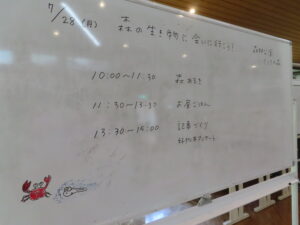 7/28(月) 森の生き物に会いに行こう!
10:00~11:30 森あるき
11:30~13:30 お昼ごはん
13:30~15:00 記事づくり